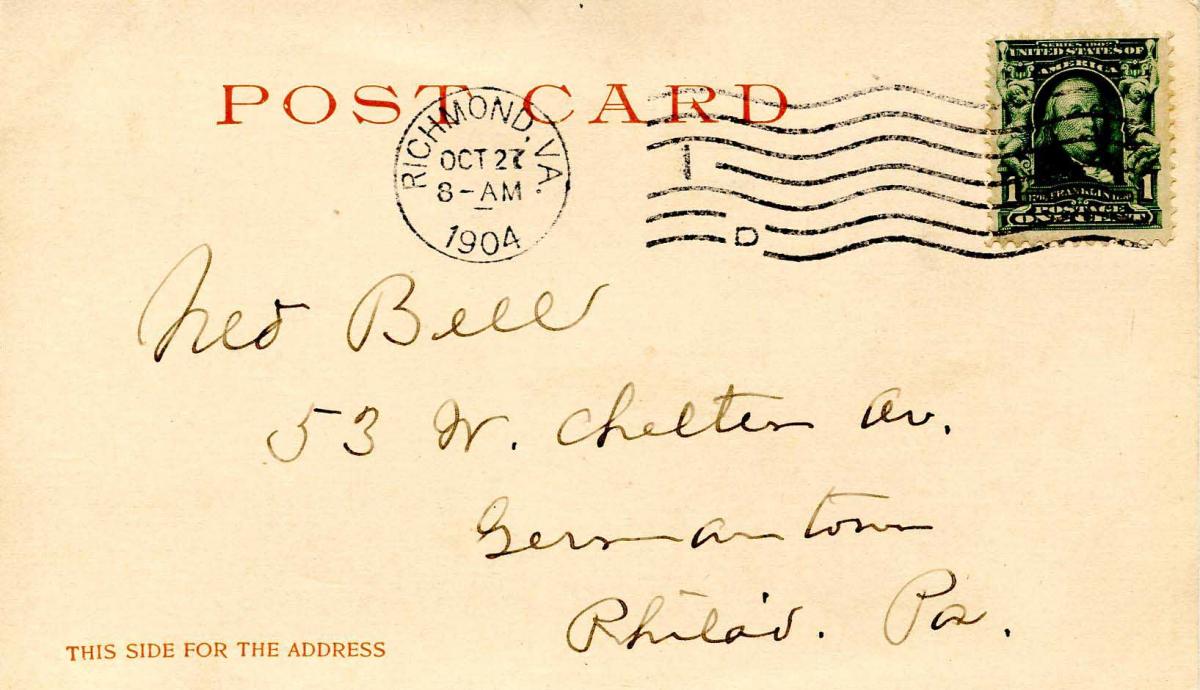 POST CARD
RICHMOND, VA.
OCT 27
8-AM
1904
1
D
SERIES 1902
UNITED STATES OF
AMERICA
1 FRANKLIN 1
POSTAGE
ONE
Ned Bell
53 W. Chelten Av.
Germantown
Philad. Pa.
THIS SIDE FOR THE ADDRESS